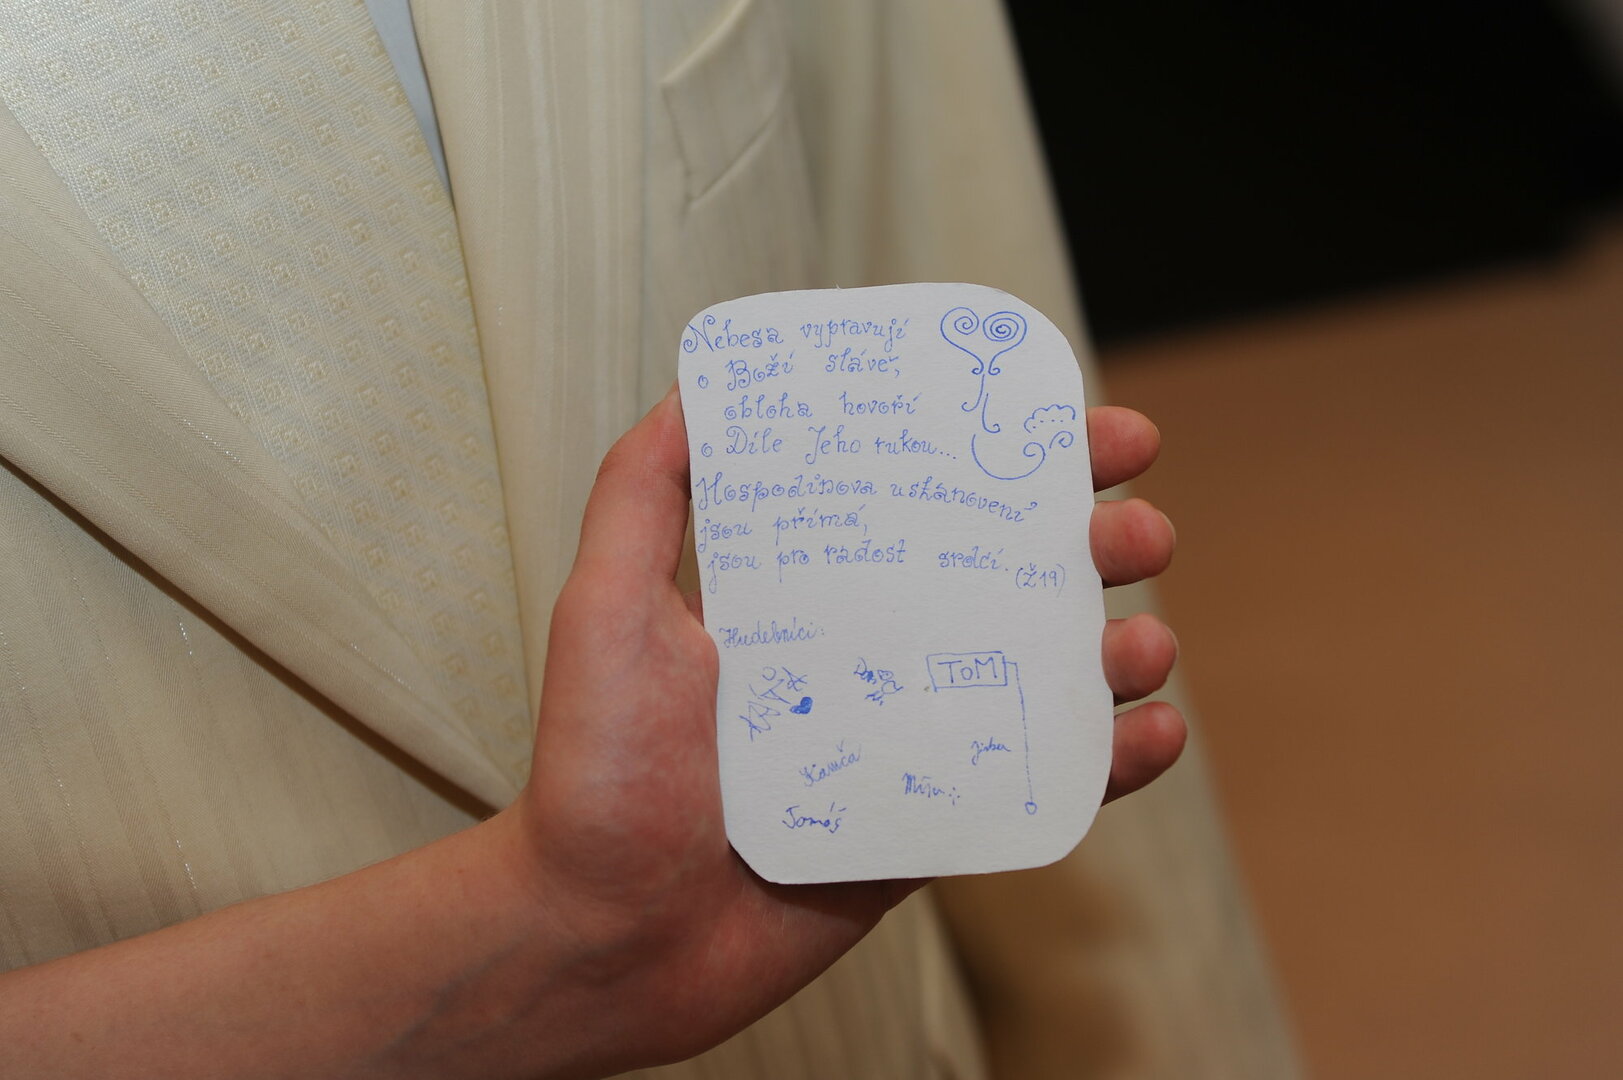 Nebesa vypravují
o Boží slávě,
obloha hovoří
o Díle Jeho rukou...
Hospodinova ustanovení
jsou přímá,
jsou pro radost srdci. (Ž19)
Hudebníci:
KÁŤA
TOM
Kamča
Tomáš